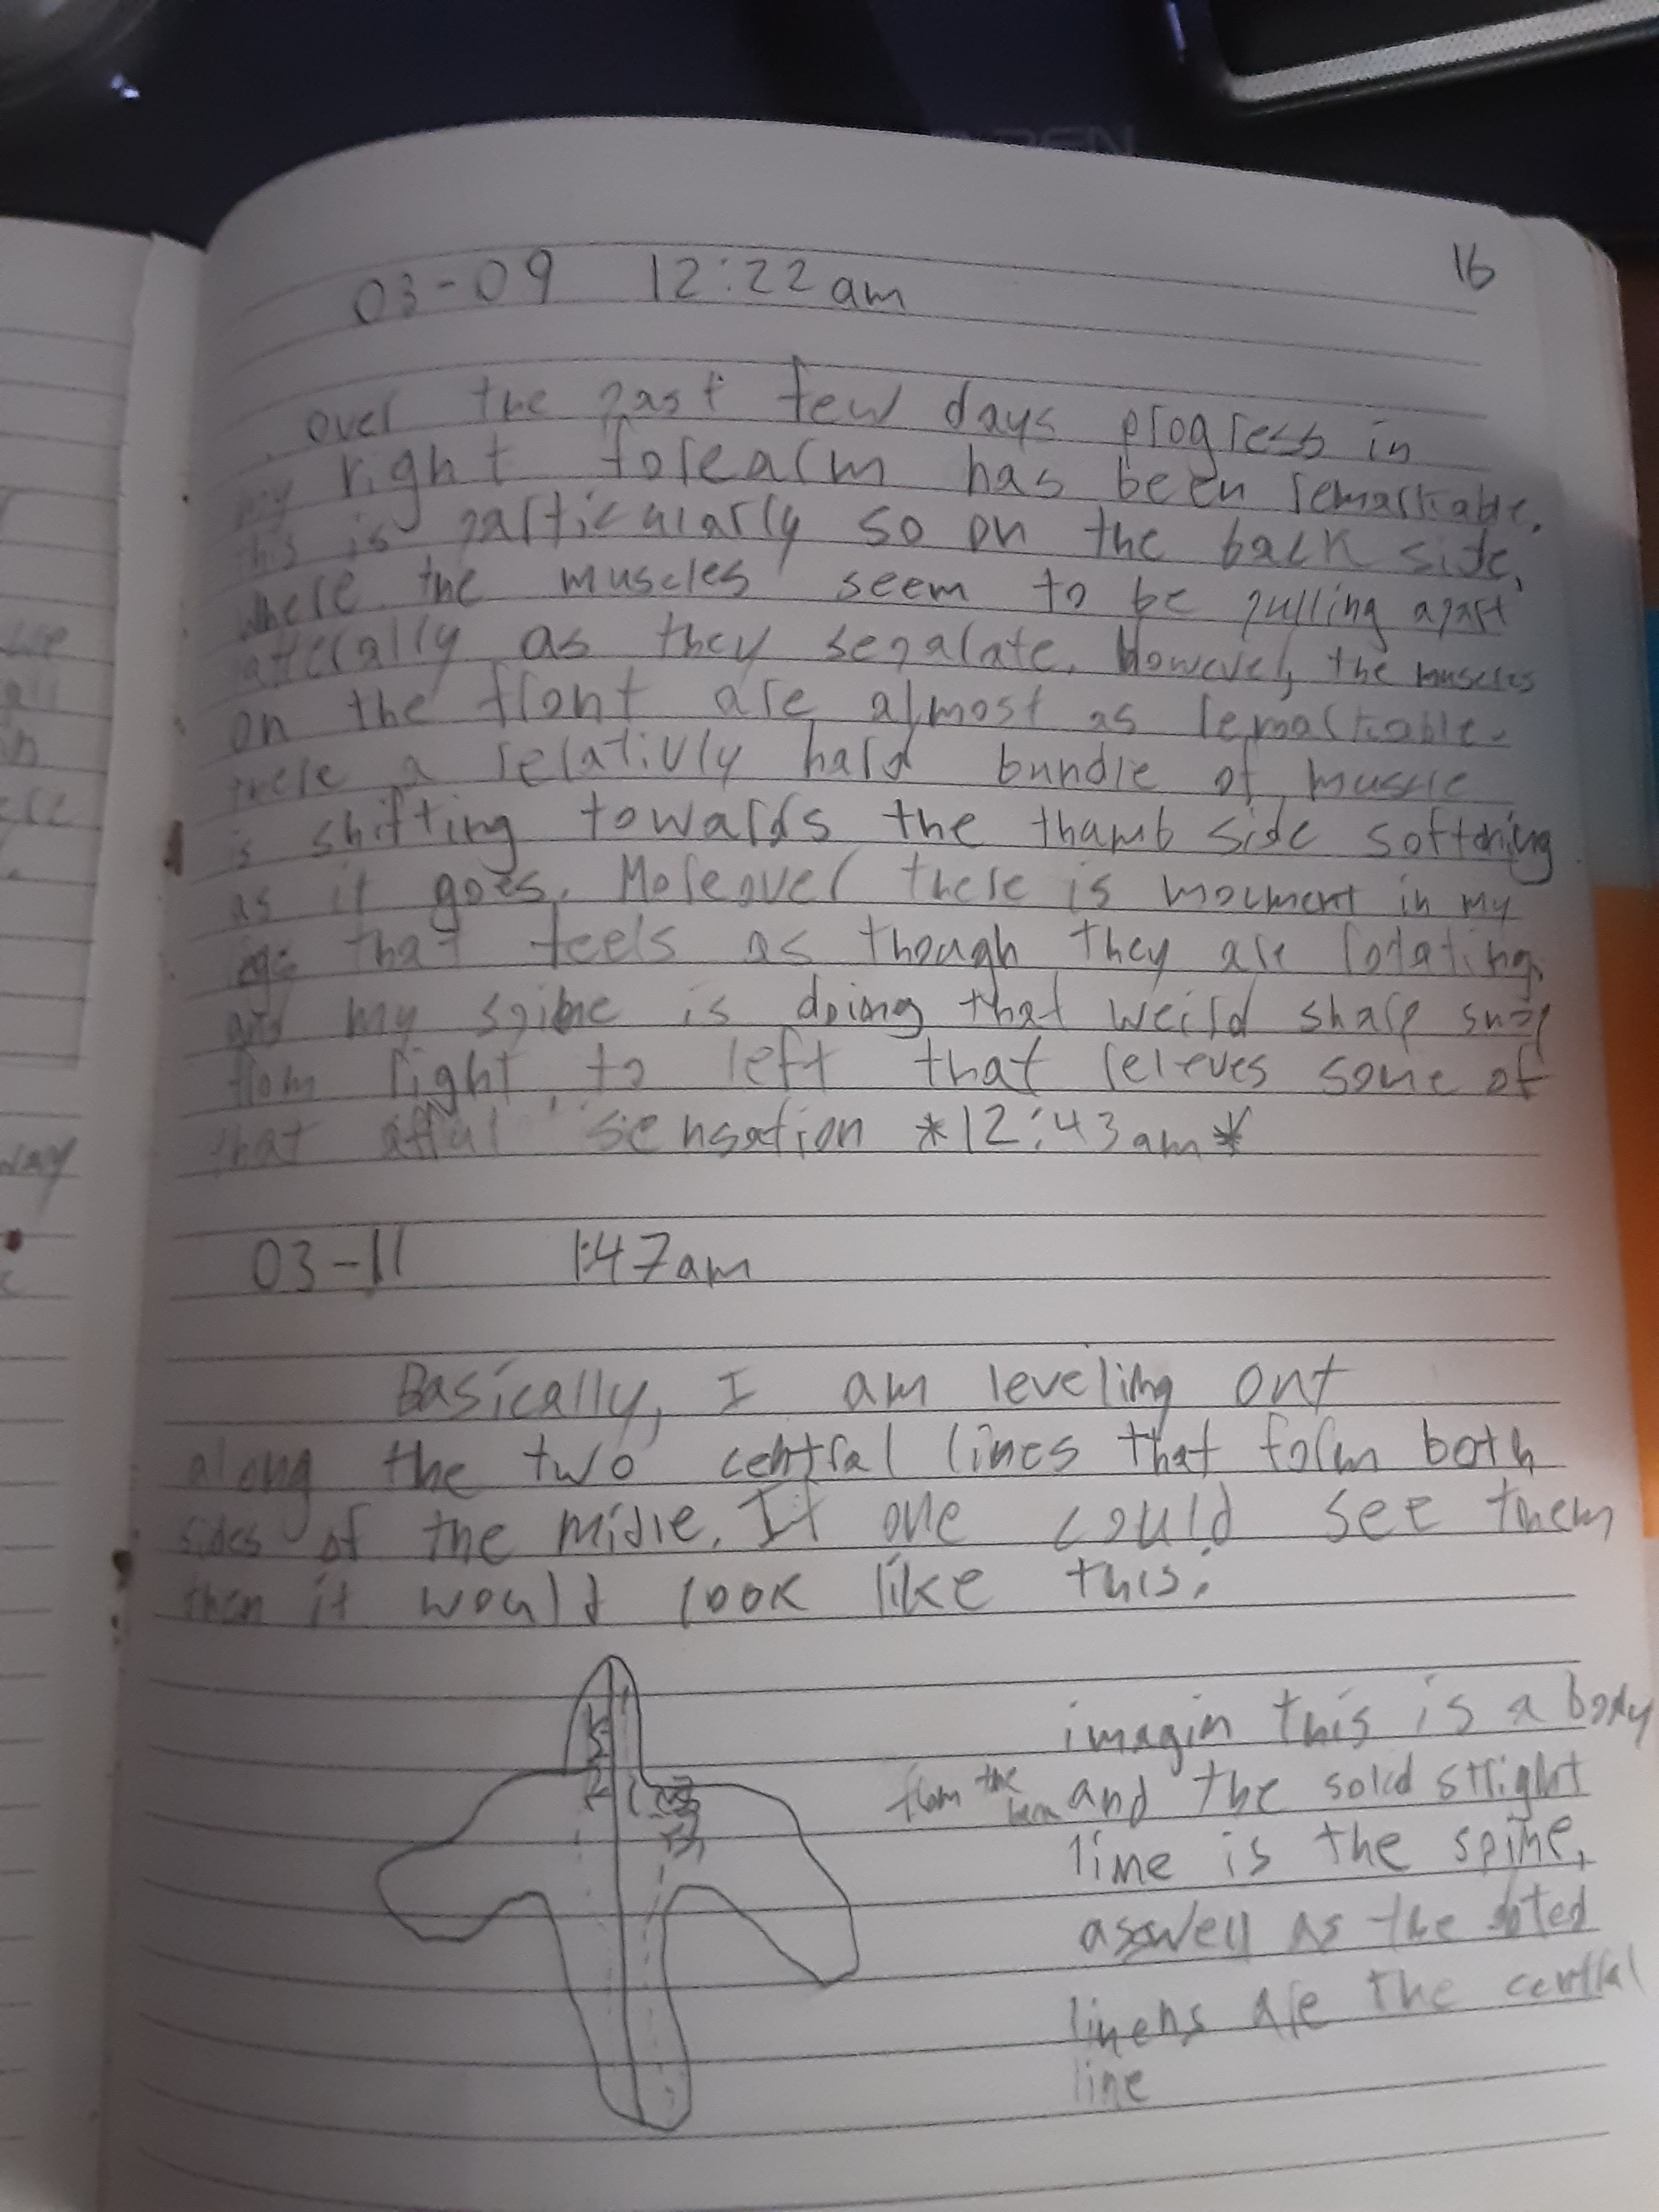 16
03-09 12:22am
over the past few days progress in
my right forearm has been remarkable.
this is particularly so on the back side,
where the muscles seem to be pulling apart
laterally as they separate. However, the muscles
on the front are almost as remarkable.
there a relativly hard bundle of muscle
is shifting towards the thumb side softening
as it goes. Moreover there is movment in my
legs that feels as though they are rotating,
and my spine is doing that weird sharp snap
from right to left that releves some of
that sensation *12:43am*
03-11 1:47am
Basically, I am leveling out
along the two central lines that form both
sides of the midle. If one could see them
then it would look like this:
imagin this is a body
from the and the solid stright
line is the spine,
aswell as the doted
linens are the central
line